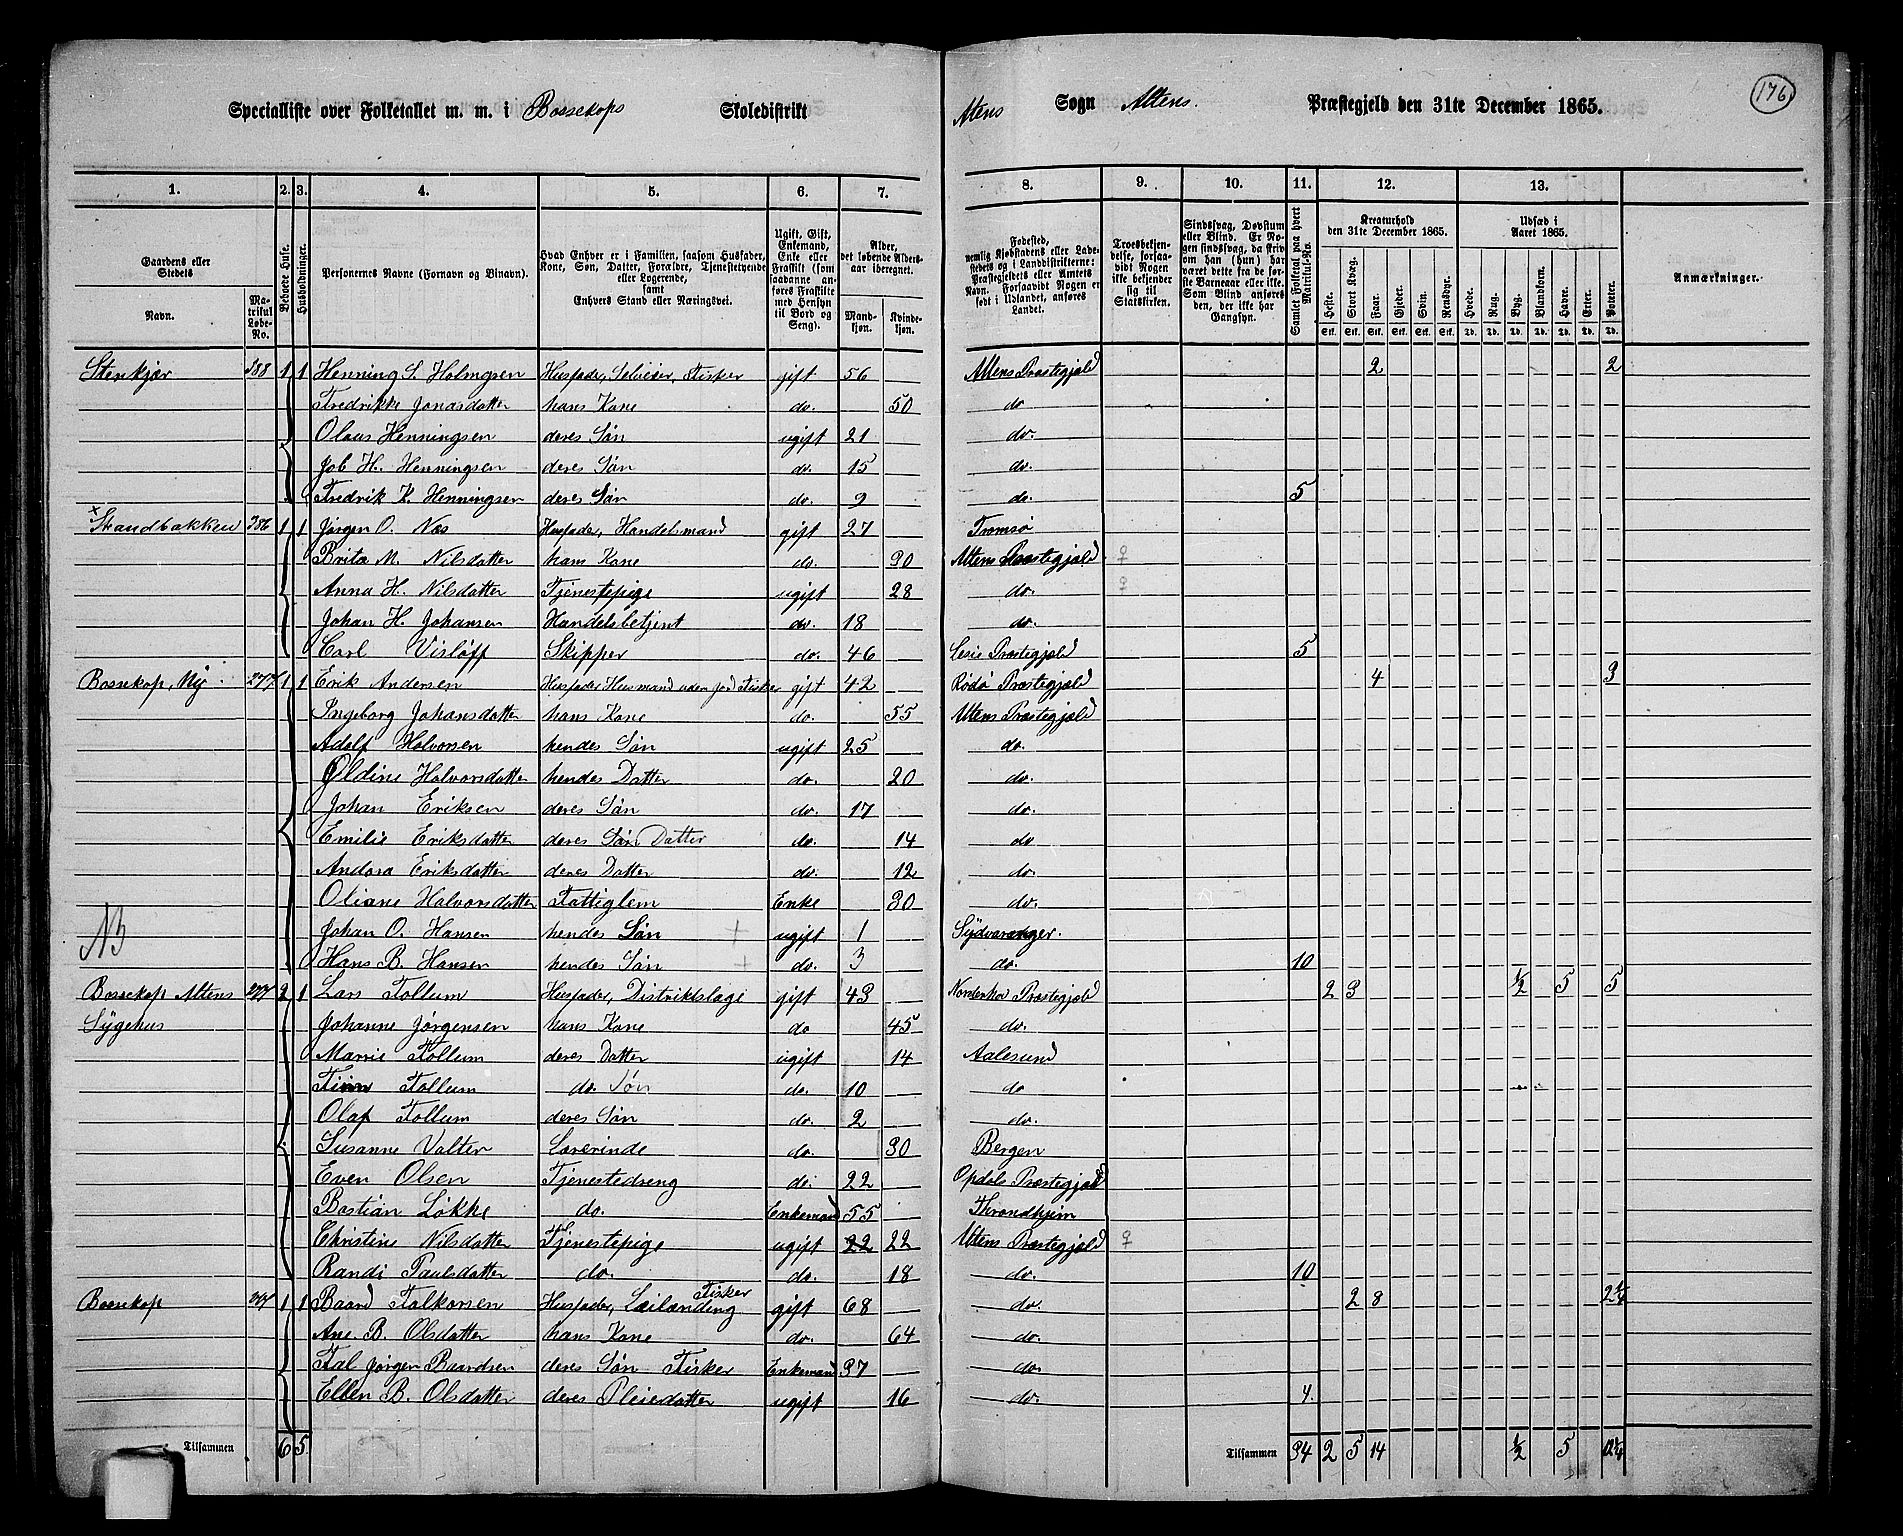 Specialliste over Folketallet m. m. i Bossekops Skoledistrikt Altens Sogn Altens Præstegjeld den 31te December 1865. 176
1. 2. 3. 4. 5. 6. 7. 8. 9. 10. 11. 12. 13.
Gaardens eller Stedets Navn. Matrikul Løbe-No.
Beboede Huse.
Husholdninger.
Personernes Navne (Fornavn og Binavn).
Hvad Enhver er i Familien, saasom Husfader, Kone, Søn, Datter, Forældre, Tjenestetyende eller Logerende, samt Enhvers Stand eller Næringsvei.
Ugift, Gift, Enkemand, Enke eller Fraskilt (som saadanne anføres Fraskilte med Hensyn til Bord og Seng).
Alder, det løbende Aldersaar iberegnet. Mandkjøn. Kvindekjøn.
Fødested, nemlig Kjøbstadens eller Ladestedets og i Landdistrikterne: Præstegjeldets eller Amtets Navn. Forsaavidt Nogen er født i Udlandet, anføres Landet.
Troesbekjendelse, forsaavidt Nogen ikke bekjender sig til Statskirken.
Sindssvag, Døvstum eller Blind. Er Nogen sindssvag, da skrives om han (hun) har været dette fra de første Barneaar eller ikke. Som Blind anføres den, der ikke har Gangsyn.
Samlet Folketal paa hvert Matrikul-No.
Kreaturhold den 31te December 1865. Heste. Stort Kvæg. Faar. Gjeder. Svin. Rensdyr.
Udsæd i Aaret 1865. Hvede. Rug. Byg. Blandkorn. Havre. Erter. Poteter.
Anmærkninger.
Stenkjær 388 1 1 Henning S. Holmgsen Husfader, Selveier, Fisker gift 56 Altens Præstegjeld 2 2
Fredrikke Jonasdatter hans Kone do. 50 do
Olaus Henningsen deres Søn ugift 21 do.
Job H. Henningsen deres Søn do. 15 do.
Fredrik K. Henningsen deres Søn do. 9 do. 5
Strandbakken 386 1 1 Jørgen O. Næs Husfader, Handelsmand gift 27 Tromsø
Brita M. Nilsdatter hans Kone do. 30 Altens Præstegjeld ♀
Anna H. Nilsdatter Tjenestepige ugift 28 do. ♀
Johan H. Johansen Handelsbetjent do. 18 do.
Carl Visløff Skipper do. 46 Lesie Præstegjeld 5
Bossekop, Ny 277 1 1 Erik Andersen Husfader Husmand uden Jord Fisker gift 42 Rødø Præstegjeld 4 3
Ingeborg Johansdatter hans Kone do. 55 Altens Præstegjeld
Adolf Halvorsen hendes Søn ugift 25 do.
Oldine Halvorsdatter hendes Datter do. 20 do.
Johan Eriksen deres Søn do. 17 do.
Emilie Eriksdatter deres Søn Datter do. 14 do
Andora Eriksdatter deres Datter do. 12 do.
Oliane Halvorsdatter Fattiglem Enke 30 do.
NB Johan O. Hansen hendes Søn + ugift 1 Sydvaranger.
Hans B. Hansen hendes Søn + do. 3 do. 10
Bossekop Altens 277 2 1 Lars Follum Husfader, Distriktslæge gift 43 Norderhov Præstegjeld 2 3 ½ 5 5
Sygehus Johanne Jørgensen hans Kone do 45 do.
Marrie Follum deres Datter ugift 14 Aalesund
Finn Follum do. Søn do. 10 do
Olaf Follum deres Søn do. 2 do.
Susanne Valter Lærerinde do. 30 Bergen
Even Olsen Tjenestedreng do. 22 Opdals Præstegjeld
Bastian Løkke do. Enkemand 55 Throndhjem
Christine Nilsdatter Tjenestepige ugift 22 22 Altens Præstegjeld ♀
Randi Paulsdatter do. do. 18 do. 10
Bossekop 277 1 1 Baard Falkorsen Husfader, Leilænding Fisker gift 68 do. 2 8 2¼
Ane. B. Olsdatter hans Kone do. 64 do.
Fal Jørgen Baardsen deres Søn Fisker Enkemand 37 do.
Ellen B. Olsdatter deres Pleiedatter ugift 16 do. 4.
Tilsammen 6 5 Tilsammen 34 2 5 14 ½ 5 12¼